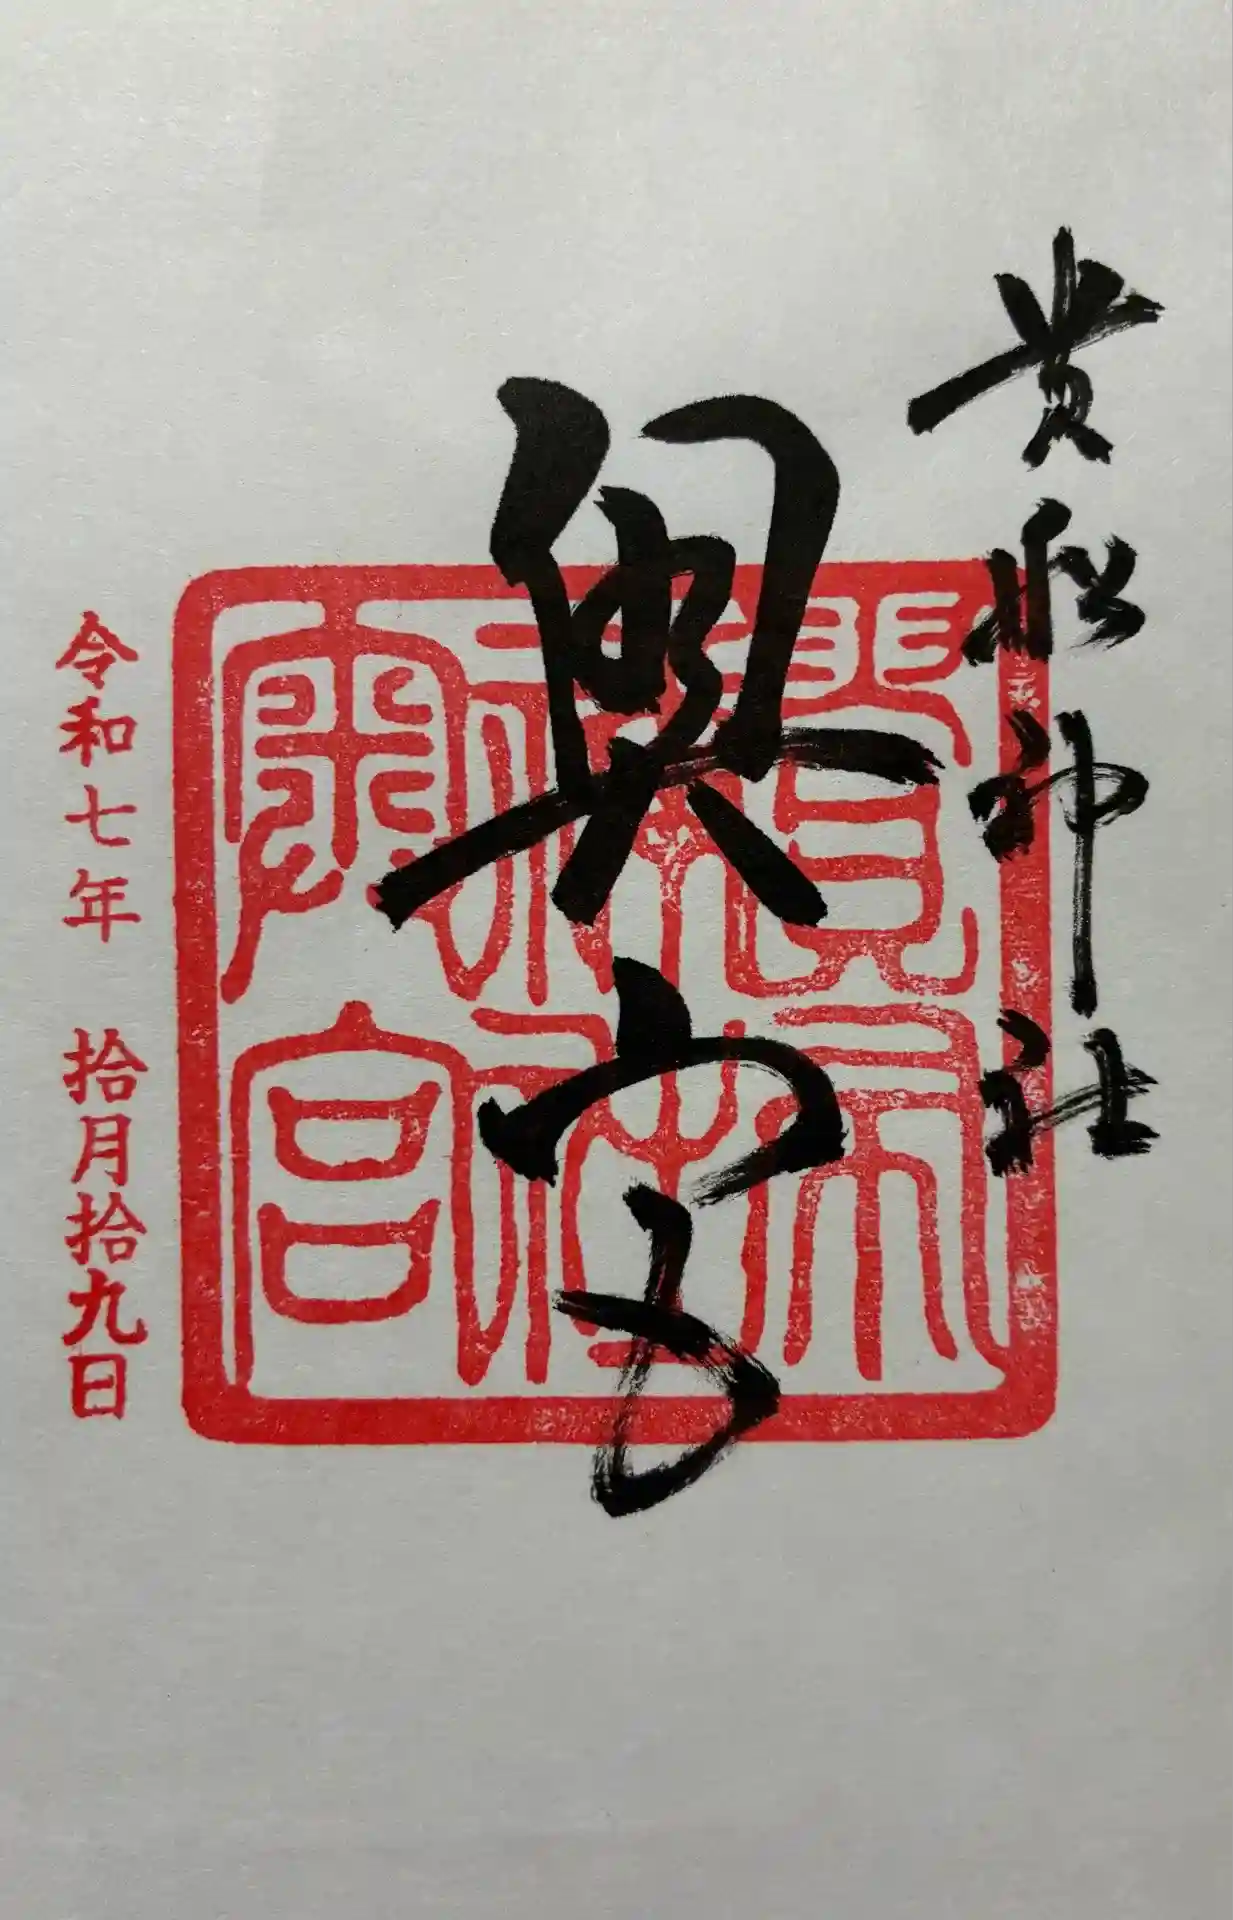 貴船神社
奥宮
貴布
祢社
奥宮
令和七年 拾月拾九日